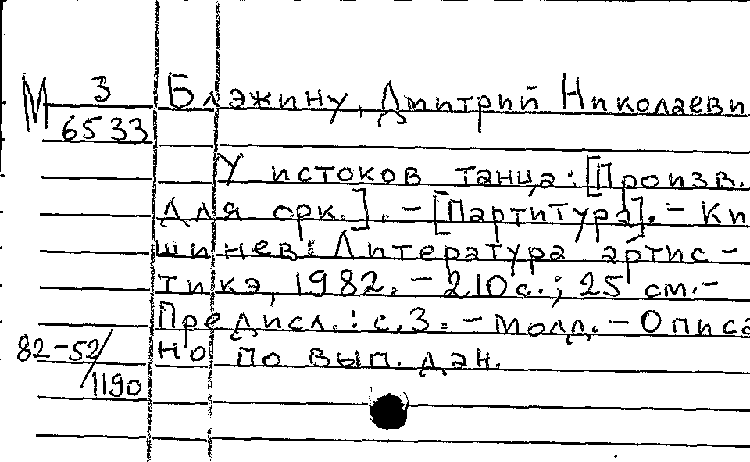 М 3/6533
Блажину, Дмитрий Николаеви
У истоков танца: [Произв.
для орк.]. – [Партитура]. – Ки
шинев: Литература артис –
тикэ, 1982. – 210 с.; 25 см. –
Предисл.: с. 3. – Молд. –Описа
но по вып. дан.
82-52/1190